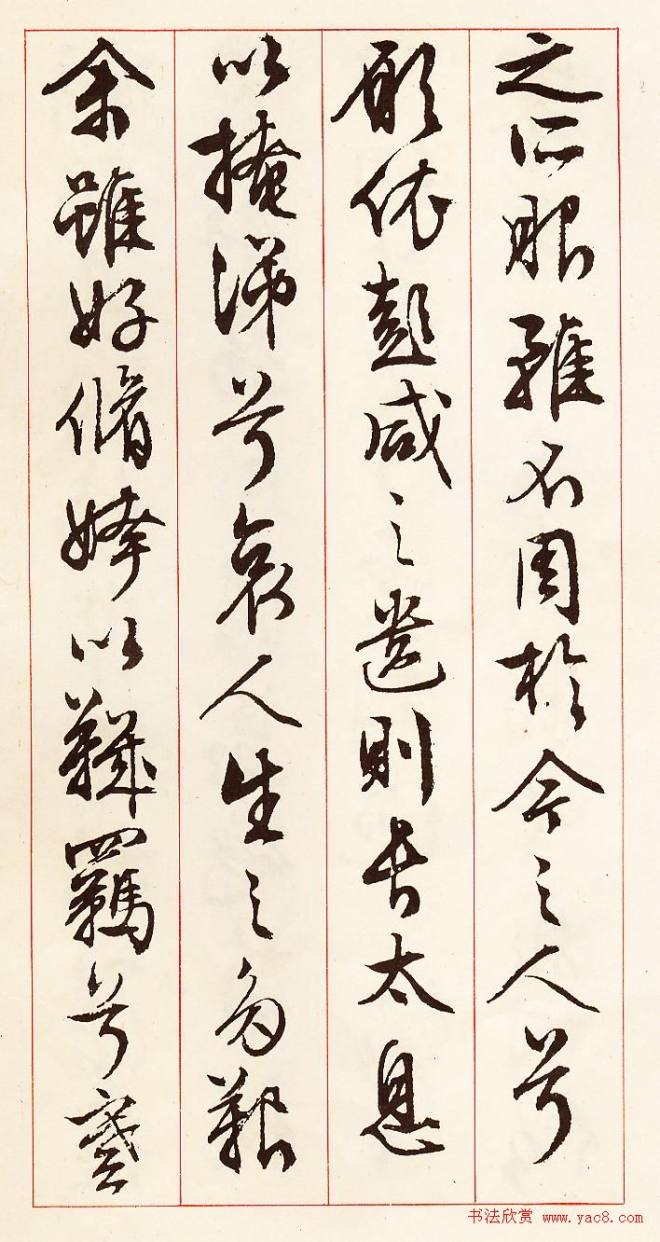 之所服雖不周於今之人兮
願依彭咸之遺則長太息
以掩涕兮哀人生之多艱
余雖好脩姱以鞿羈兮謇
书法欣赏 www.yac8.com